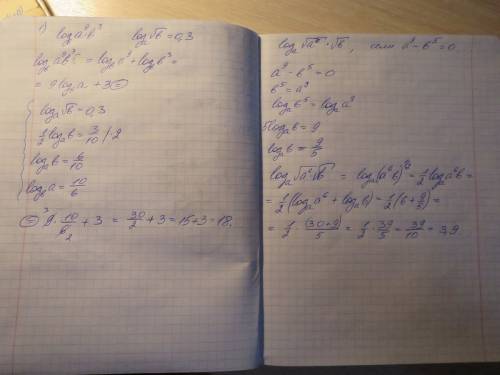 1) log_b a⁹b³   log_a √b = 0,3
log_b a⁹b³ = log_b a⁹ + log_b b³ =
= 9 log_b a + 3 =
log_a √b = 0,3
1/2 log_a b = 3/10 | ·2
log_a b = 6/10
log_b a = 10/6
= 9 · 10/6 + 3 = 30/2 + 3 = 15 + 3 = 18.
log_a √a⁶ · √b, если a⁹ - b⁵ = 0
a⁹ - b⁵ = 0
b⁵ = a⁹
log_a b⁵ = log_a a⁹
5 log_a b = 9
log_a b = 9/5
log_a √a⁶ · √b = log_a (a⁶b)^1/2 = 1/2 log_a a⁶b =
= 1/2 (log_a a⁶ + log_a b) = 1/2 (6 + 9/5) =
= 1/2 · (30+9)/5 = 1/2 · 39/5 = 39/10 = 3,9